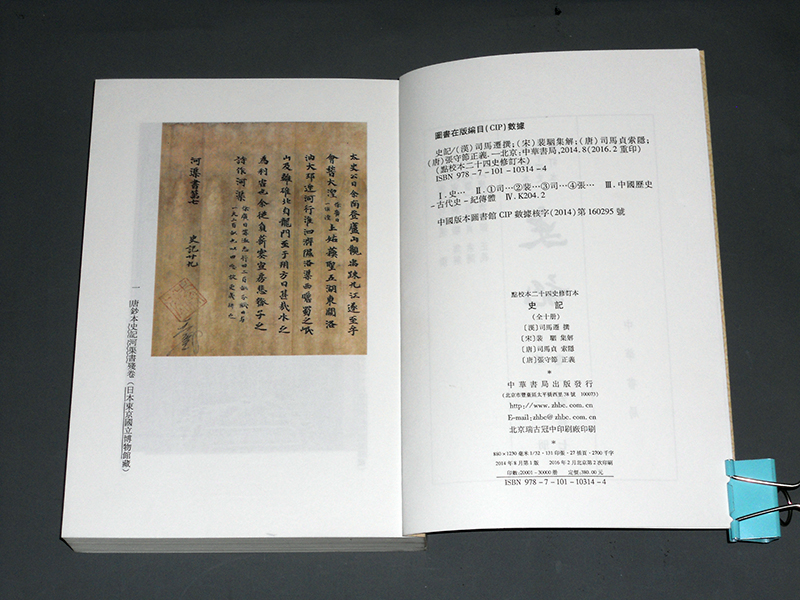 太史公曰余南登廬山觀禹疏九江遂至乎
會稽大湟
上姑蘇望五湖東闚洛
汭大邳迎河行淮泗濟漯洛渠西瞻蜀之岷
山及離碓北自龍門至于朔方曰甚哉水之
為利害也余從負薪塞宣房悲瓠子之
詩作河渠
河渠書第七 史記廿九
一 唐鈔本史記河渠書殘卷(日本東京國立博物館藏)
圖書在版編目(CIP)數據
史記/(漢)司馬遷撰;(宋)裴駰集解;(唐)司馬貞索隱;
(唐)張守節正義.—北京:中華書局,2014.8(2016.2重印)
(點校本二十四史修訂本)
ISBN 978-7-101-10314-4
Ⅰ.史… Ⅱ.①司…②裴…③司…④張… Ⅲ.中國歷史
-古代史-紀傳體 Ⅳ.K204.2
中國版本圖書館CIP數據核字(2014)第160295號
點校本二十四史修訂本
史記
(全十册)
〔漢〕司馬遷 撰
〔宋〕裴駰 集解
〔唐〕司馬貞 索隱
〔唐〕張守節 正義
*
中華書局出版發行
(北京市豐臺區太平橋西里38號 100073)
http://www.zhbc.com.cn
E-mail:zhbc@zhbc.com.cn
北京瑞古冠中印刷廠印刷
*
880×1230毫米1/32·131印張·27插頁·2700千字
2014年8月第1版 2016年2月北京第2次印刷
印數:20001-30000册 定價:380.00元
ISBN 978-7-101-10314-4